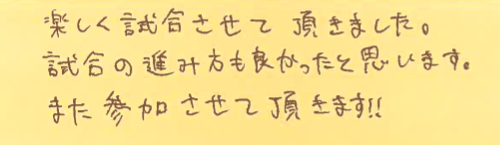 楽しく試合させて頂きました。
試合の進み方も良かったと思います。
また参加させて頂きます!!